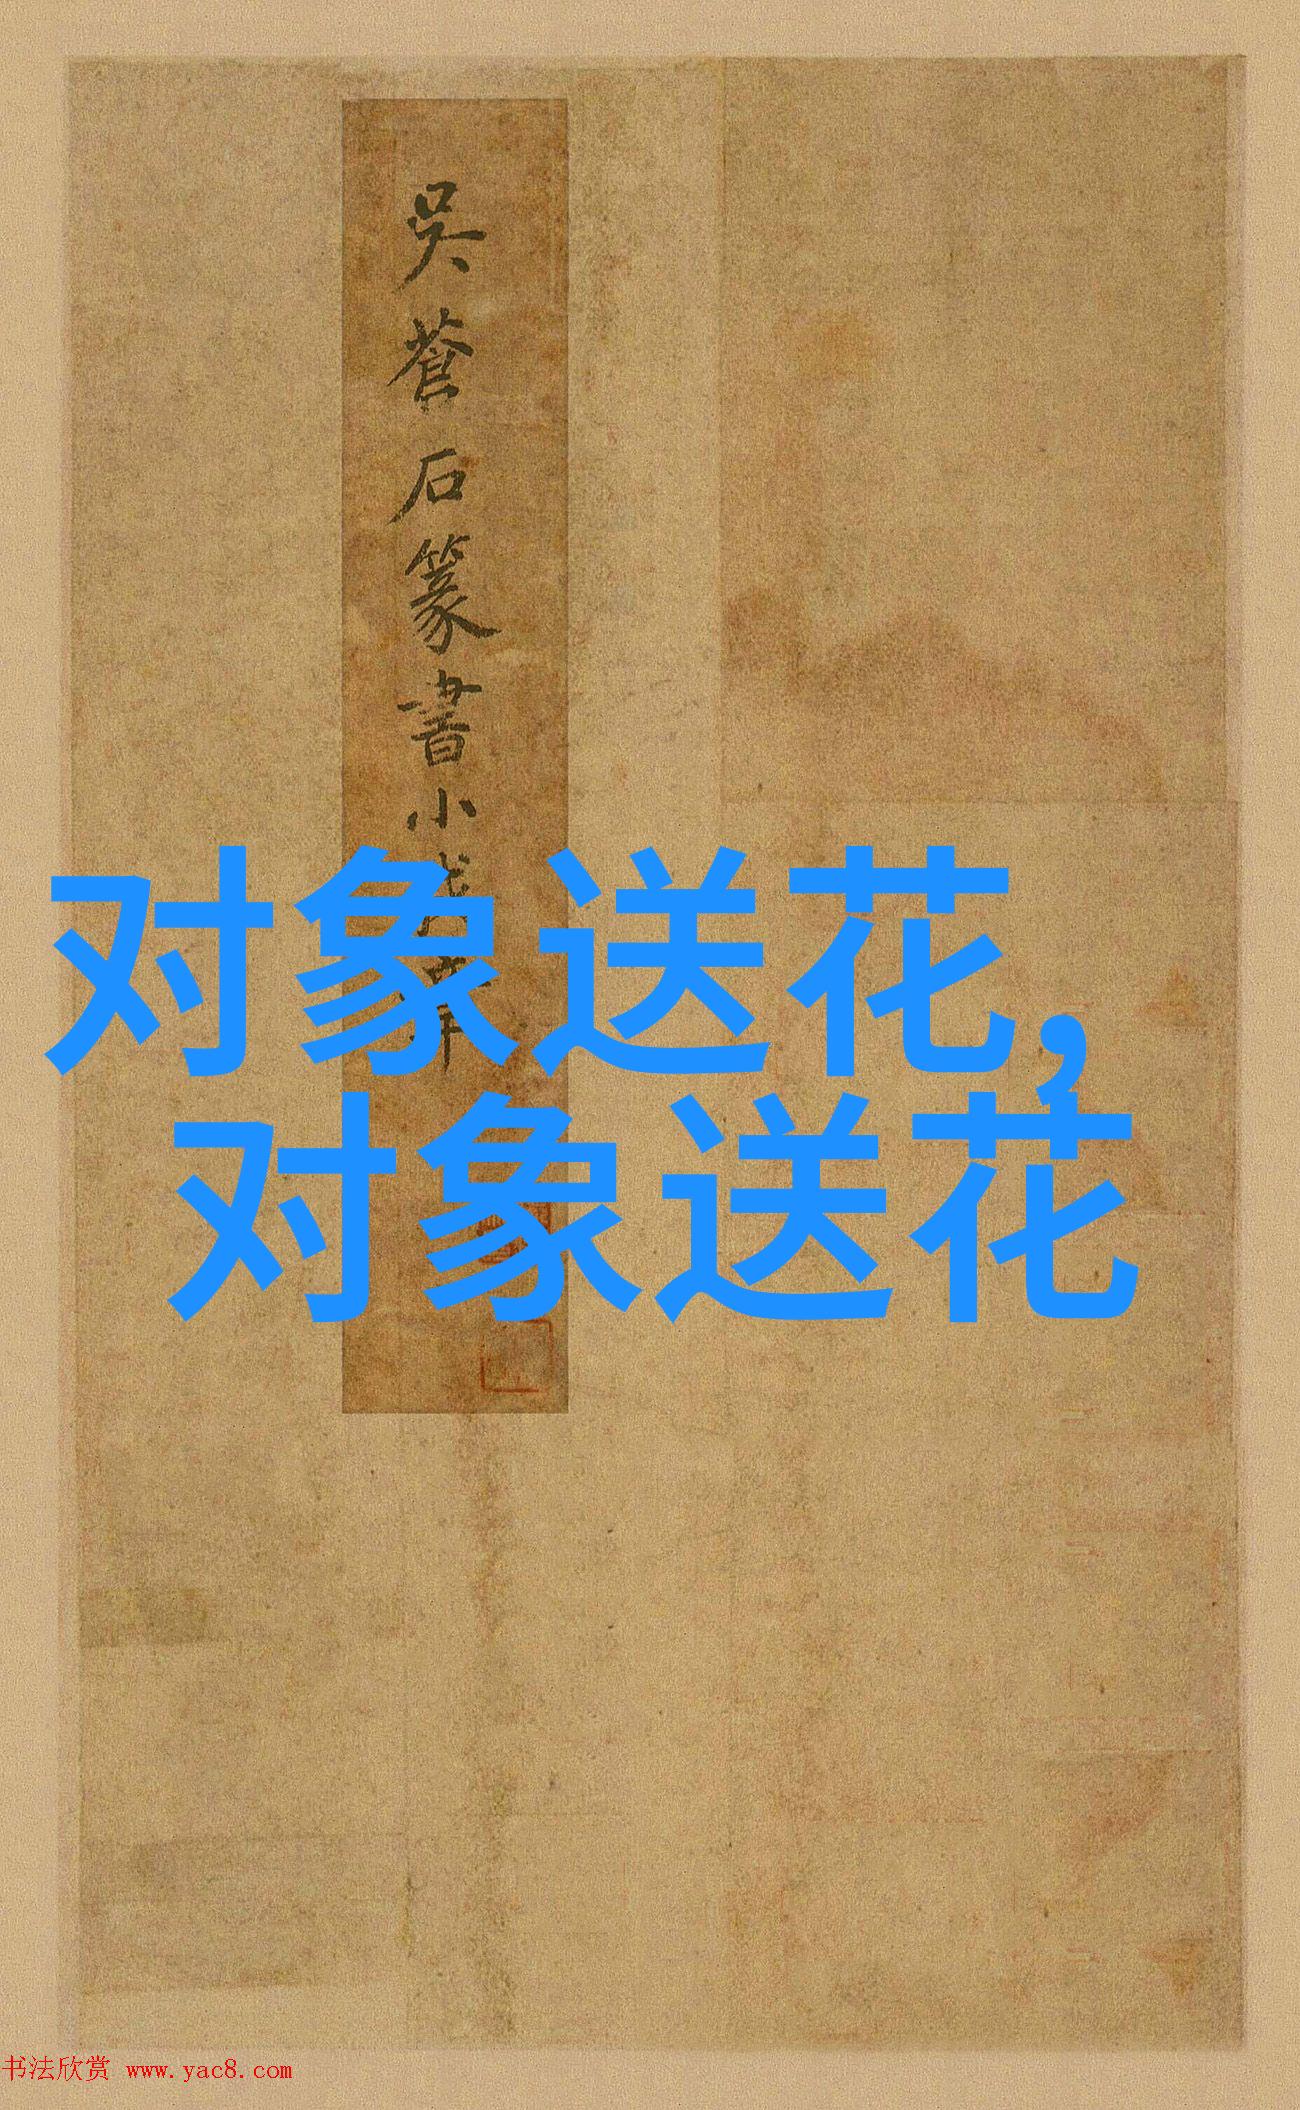 吳蒼石篆書小戎
對象送花,
对象送花
书法欣赏 www.yac8.com